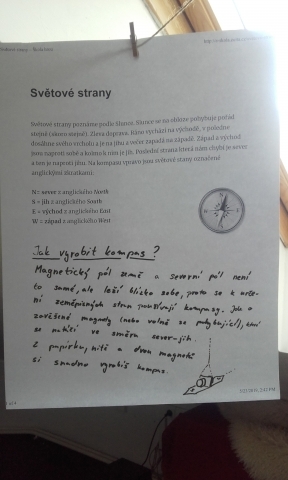 Světové strany
Světové strany poznáme podle Slunce. Slunce se na obloze pohybuje pořád
stejně (skoro stejně). Zleva doprava. Ráno vychází na východě, v poledne
dosáhne svého vrcholu a je na jihu a večer zapadá na západě. Západ a východ
jsou naproti sobě a kolmo k nim je jih. Poslední strana která nám chybí je sever
a ten je naproti jihu. Na kompasu vpravo jsou světové strany označené
anglickými zkratkami:
N = sever z anglického North
S = jih z anglického South
E = východ z anglického East
W = západ z anglického West
N
W
E
S
Jak vyrobit kompas?
Magnetický pól země a severní pól není
to samé, ale leží blízko sebe, proto se k urče-
ní zeměpisných stran používají kompasy. Jsou to
zavěšené magnety (nebo volně se pohybující), které
se natáčí ve směru sever-jih.
Z papírku, nitě a dvou magnetů
si snadno vyrobíš kompas.